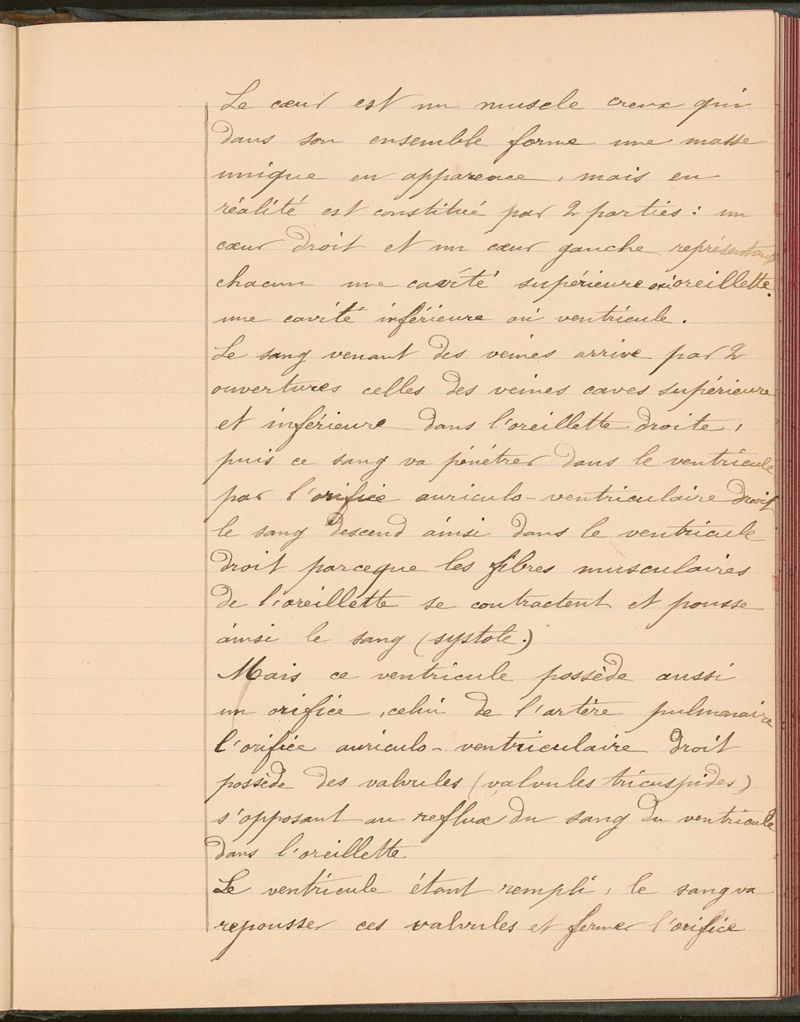 Le cœur est un muscle creux qui
dans son ensemble forme une masse
unique en apparence, mais en
réalité est constitué par 2 parties : un
cœur droit et un cœur gauche représentant
chacun une cavité supérieure ou oreillette.
une cavité inférieure ou ventricule.
Le sang venant des veines arrive par 2
ouvertures celles des veines caves supérieure
et inférieure dans l'oreillette droite,
puis ce sang va pénétrer dans le ventricule
par l'orifice auriculo-ventriculaire droit
le sang descend ainsi dans le ventricule
droit parceque les fibres musculaires
de l'oreillette se contractent et pousse
ainsi le sang (systole.)
Mais ce ventricule possède aussi
un orifice, celui de l'artère pulmonaire
l'orifice auriculo-ventriculaire droit
possède des valvules (valvules tricuspides)
s'opposant au reflux du sang du ventricule
dans l'oreillette.
Le ventricule étant rempli, le sang va
repousser ces valvules et fermer l'orifice